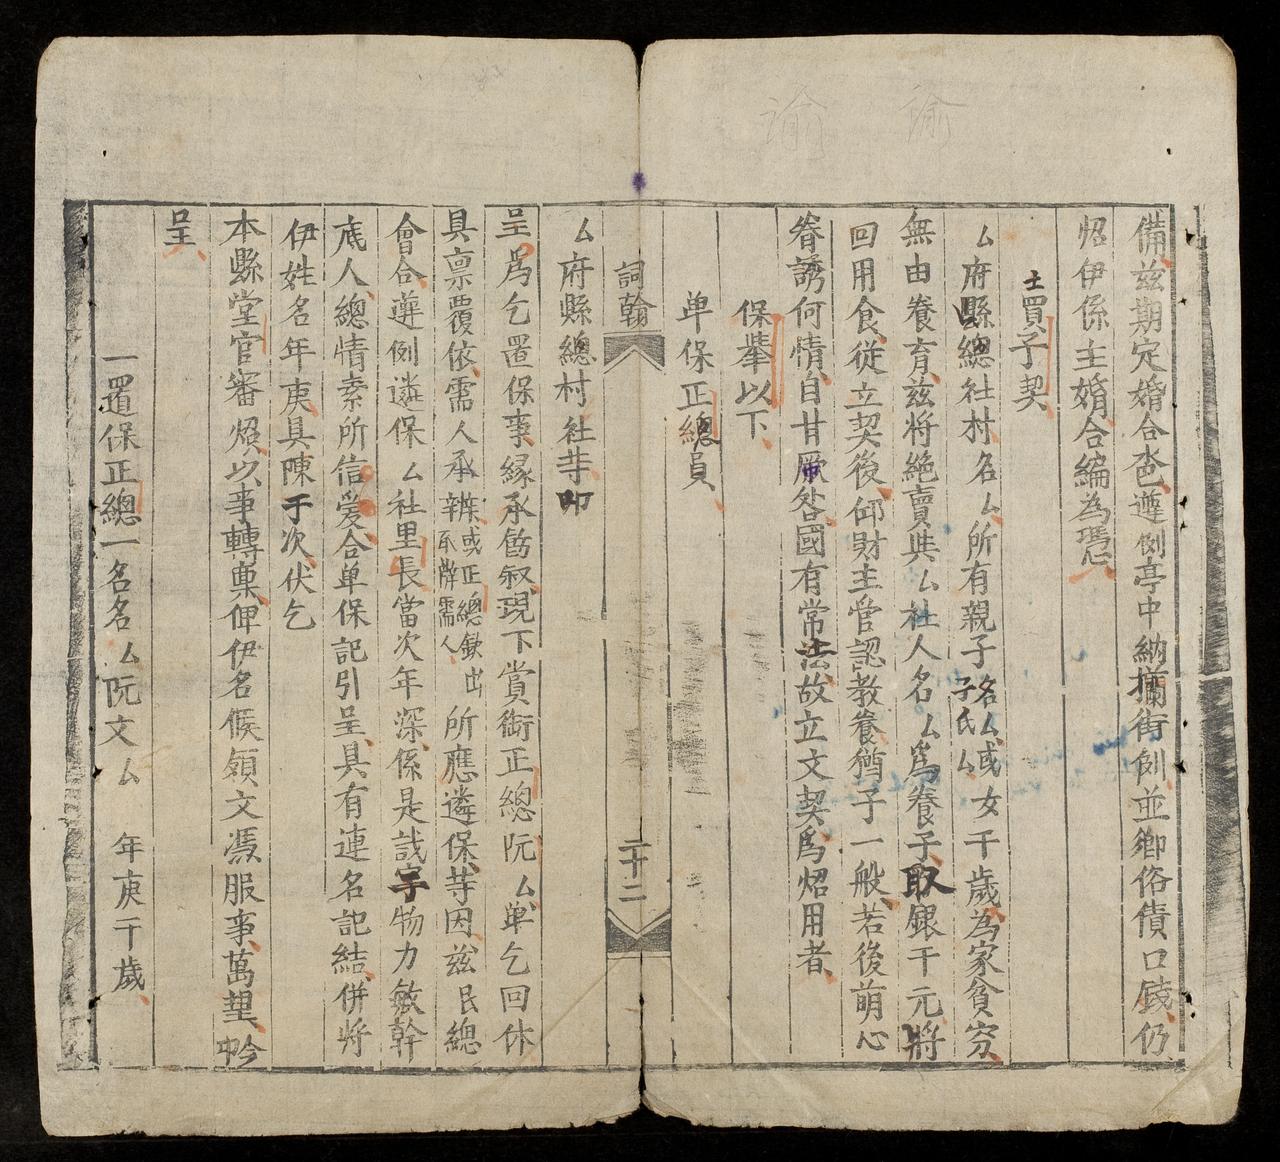 備兹期定婚合卺遵例亭中納攔街例並鄉俗債口錢仍
炤伊係主婚合編為憑
土買子契
厶府縣總社村名厶所有親子名厶或女子氏厶干歲為家貧穷
無由養育兹將絶賣與厶社人名厶爲養子取銀干元將
回用食從立契後仰財主管認教養猶子一般若後萌心
眷誘何情自甘厥咎國有常法故立文契爲炤用者
保舉以下
单保正總員
詞翰
二十二
厶府縣總村社等叩
呈爲乞置保事縁承飭叙現下賞銜正總阮厶单乞回休
具禀覆依需人承辦或正總欽出不幣需人所應遴保等因兹民總
會合遵例遴保厶社里長當次年深係是識字物力敏幹
底人總情素所信爱合单保記引呈具有連名記結併將
伊姓名年庚具陳于次伏乞
本縣堂官審炤以事轉禀俾伊名候領文憑服事萬望吟
呈
一置保正總一名名厶阮文厶 年庚干歲